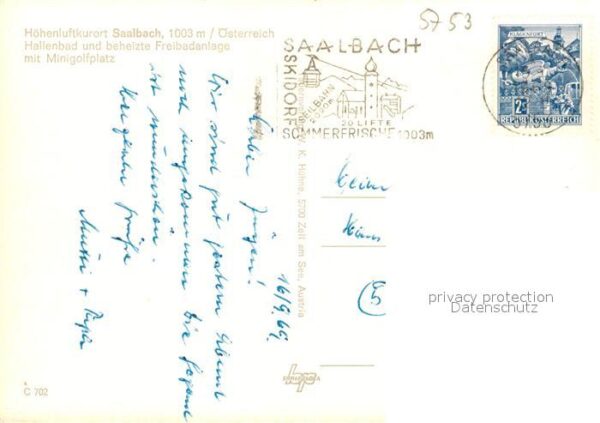 Höhenluftkurort Saalbach, 1003 m / Österreich
Hallenbad und beheizte Freibadanlage
mit Minigolfplatz
5753
SAALBACH
SKIDORF
SEILBAHN
2020m
20 LIFTE
SOMMERFRISCHE 1003m
KLAGENFURT
2S
REPUBLIK ÖSTERREICH
16/9.69.
Lieber Jürgen!
Wir sind gut gestern Abend
noch angekommen die Gegend
ist wunderschön.
Herzliche Grüße
Mutti + Papa
W. K. Hühne, 5700 Zell am See, Austria
privacy protection
Datenschutz
C 702